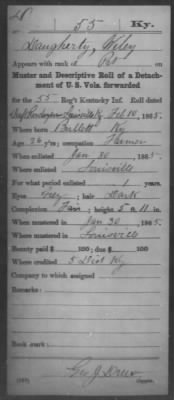 D 55 Ky.
Daugherty, Wiley
Appears with rank of Pvt on
Muster and Descriptive Roll of a Detach-
ment of U. S. Vols. forwarded
for the 55 Reg't Kentucky Inf. Roll dated
Louisville Ky, Feb 10, 1865.
Where born Bullitt Ky
Age 26 y'rs; occupation Farmer
When enlisted Jan 30, 1865.
Where enlisted Louisville
For what period enlisted 1 years.
Eyes Grey; hair Dark
Complexion Fair; height 5 ft. 11 in.
When mustered in Jan 30, 1865.
Where mustered in Louisville
Bounty paid $ 100; due $ 100
Where credited 5 Dist Ky
Company to which assigned
Remarks:
Book mark:
Copyist.